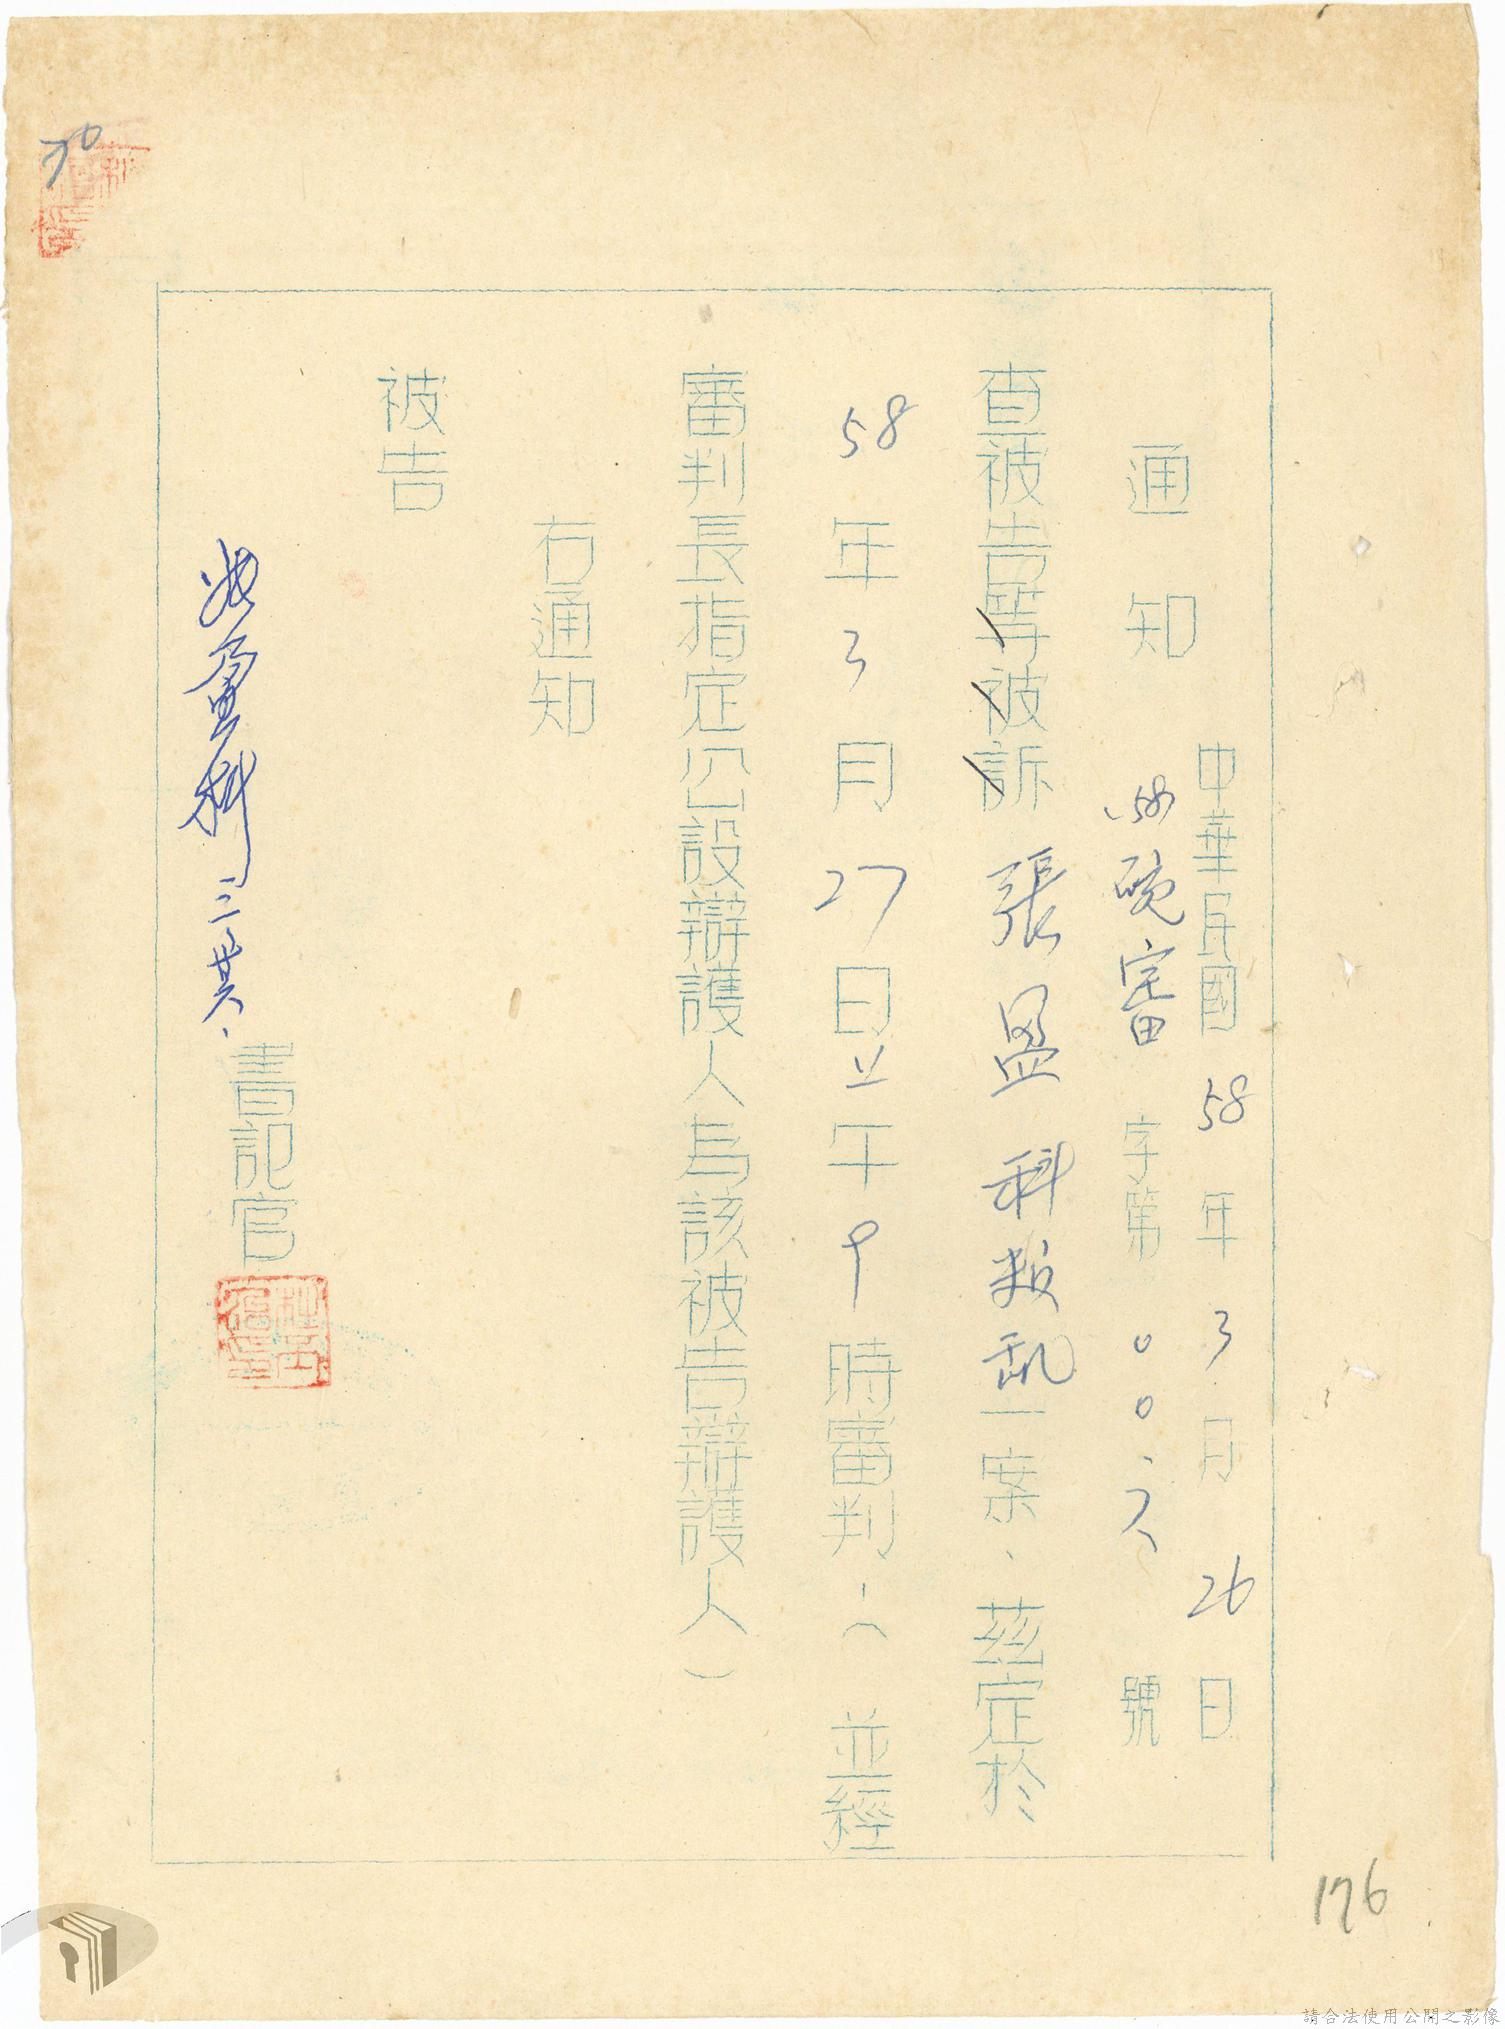 通知
中華民國58年3月26日
審字第00六號
查被告等被訴張盈科叛乱一案、茲定於
58年3月27日上午9時審判(並經
審判長指定公設辯護人為該被告辯護人)
右通知
被告
張盈科
書記官
176
請合法使用公開之影像